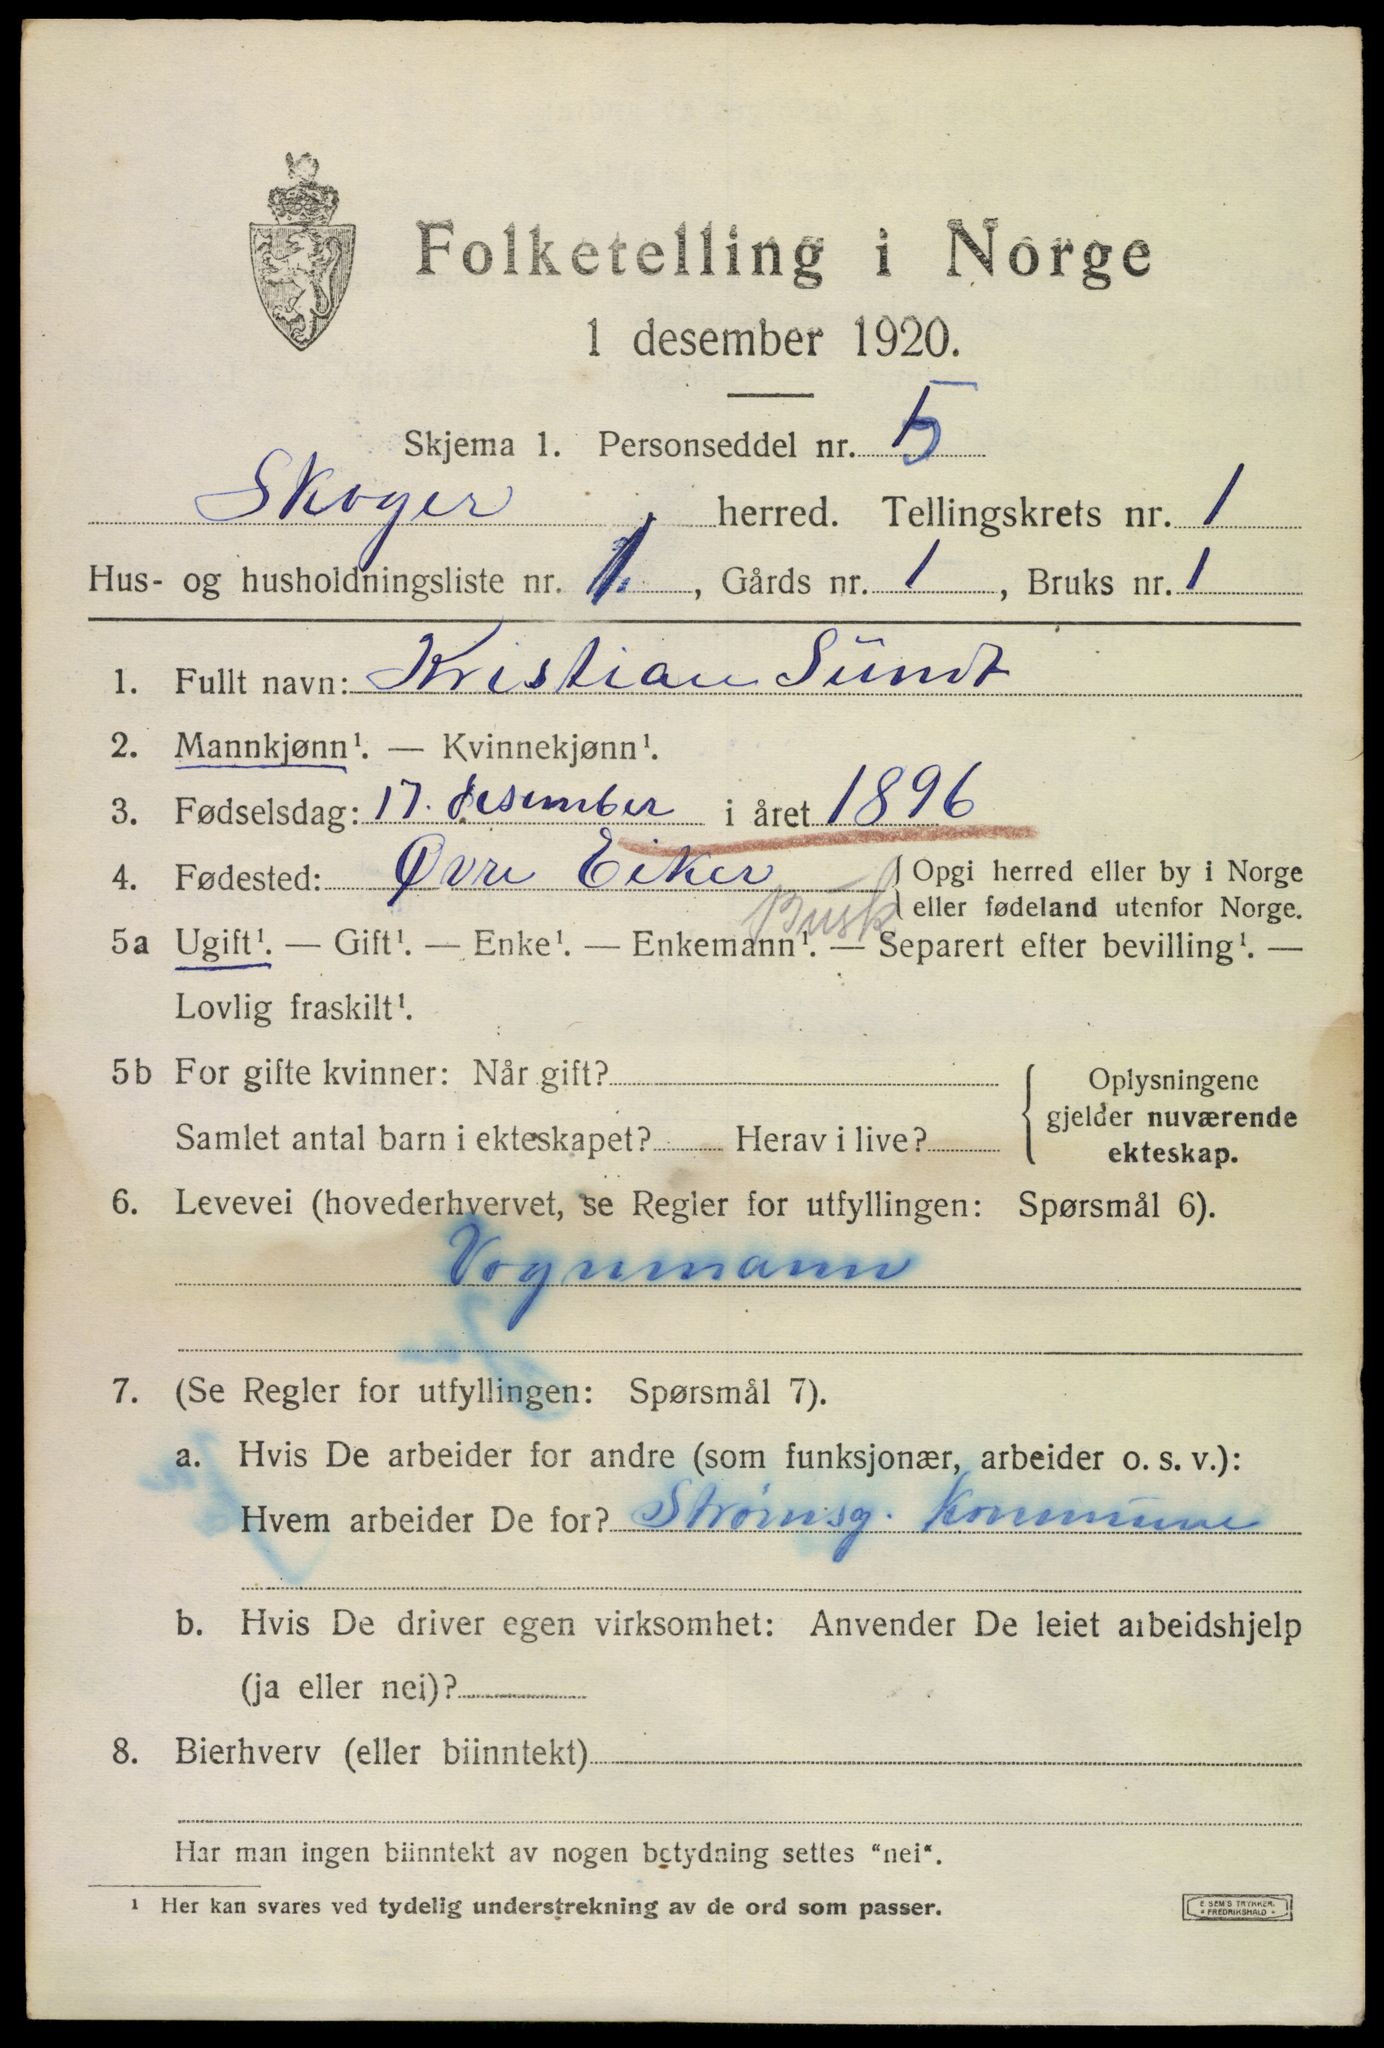 Folketelling i Norge
1 desember 1920.
Skjema 1. Personseddel nr. 5
Skoger herred. Tellingskrets nr. 1
Hus- og husholdningsliste nr. 1, Gårds nr. 1, Bruks nr. 1
1. Fullt navn: Kristian Sündt
2. Mannkjønn¹. — Kvinnekjønn¹.
3. Fødselsdag: 17. desember i året 1896
4. Fødested: Øvre Eiker Opgi herred eller by i Norge
eller fødeland utenfor Norge.
Busk
5a Ugift¹. — Gift¹. — Enke¹. — Enkemann¹. — Separert efter bevilling¹. —
Lovlig fraskilt¹.
5b For gifte kvinner: Når gift? Oplysningene
gjelder nuværende
Samlet antal barn i ekteskapet? Herav i live?
ekteskap.
6. Levevei (hovederhvervet, se Regler for utfyllingen: Spørsmål 6).
Vognmann
7. (Se Regler for utfyllingen: Spørsmål 7).
a. Hvis De arbeider for andre (som funksjonær, arbeider o. s. v.):
Hvem arbeider De for? Strømsg. Kommune
b. Hvis De driver egen virksomhet: Anvender De leiet arbeidshjelp
(ja eller nei)?
8. Bierhverv (eller biinntekt)
Har man ingen biinntekt av nogen betydning settes “nei“.
¹ Her kan svares ved tydelig understrekning av de ord som passer.
E SEM'S TRYKKERI
FREDRIKSHALD